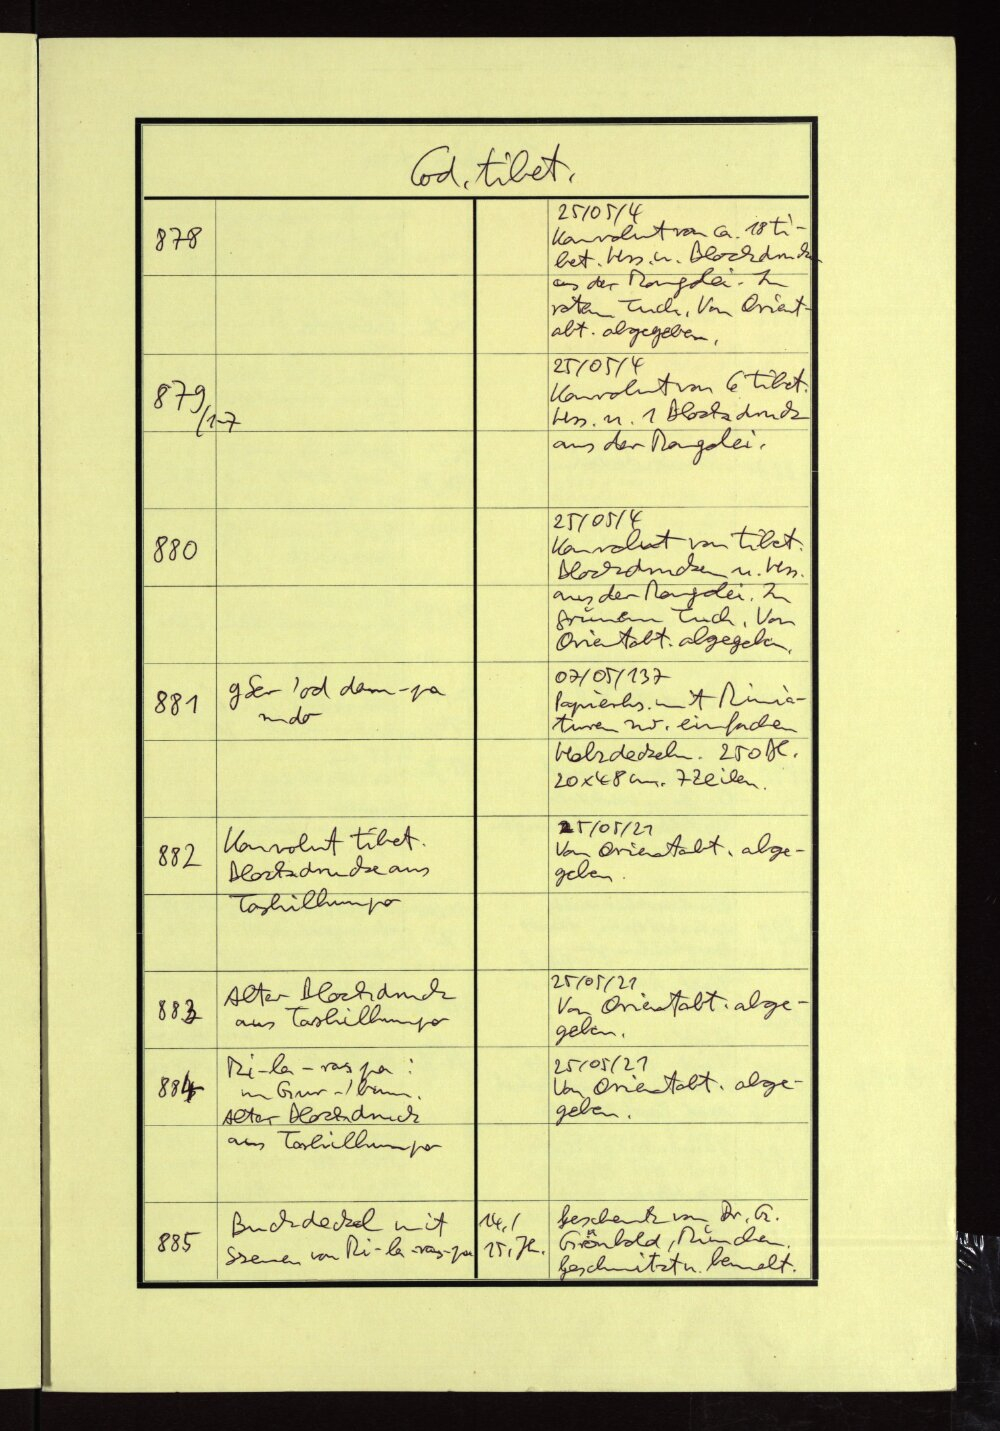 Cod. tibet.
878
25/05/4
Konvolut von ca. 18 ti-
bet. Hss. u. Blockdrucke
aus der Mongolei. In
rotem Tuch. Von Orient-
abt. abgegeben.
879/1-7
25/05/4
Konvolut von 6 tibet.
Hss. u. 1 Blockdruck
aus der Mongolei.
880
25/05/4
Konvolut von tibet.
Blockdrucken u. Hss.
aus der Mongolei. In
grünem Tuch. Von
Orientabt. abgegeben.
881
gSer 'od dam-pa
mdo
07/05/137
Papierhs. mit Minia-
turen zw. einfachen
Holzdeckeln. 250 Bl.
20x48 cm. 7 Zeilen.
882
Konvolut tibet.
Blockdrucke aus
Tashilhunpo
25/05/21
Von Orientabt. abge-
geben.
883
Alter Blockdruck
aus Tashilhunpo
25/05/21
Von Orientabt. abge-
geben.
884
Mi-la-ras pa:
mGur-'bum.
Alter Blockdruck
aus Tashilhunpo
25/05/21
Von Orientabt. abge-
geben.
885
Buchdeckel mit
Szenen von Mi-la-ras-pa
14./
15. Jh.
Geschenk von Dr. G.
Grönbold, München.
Geschnitzt u. bemalt.